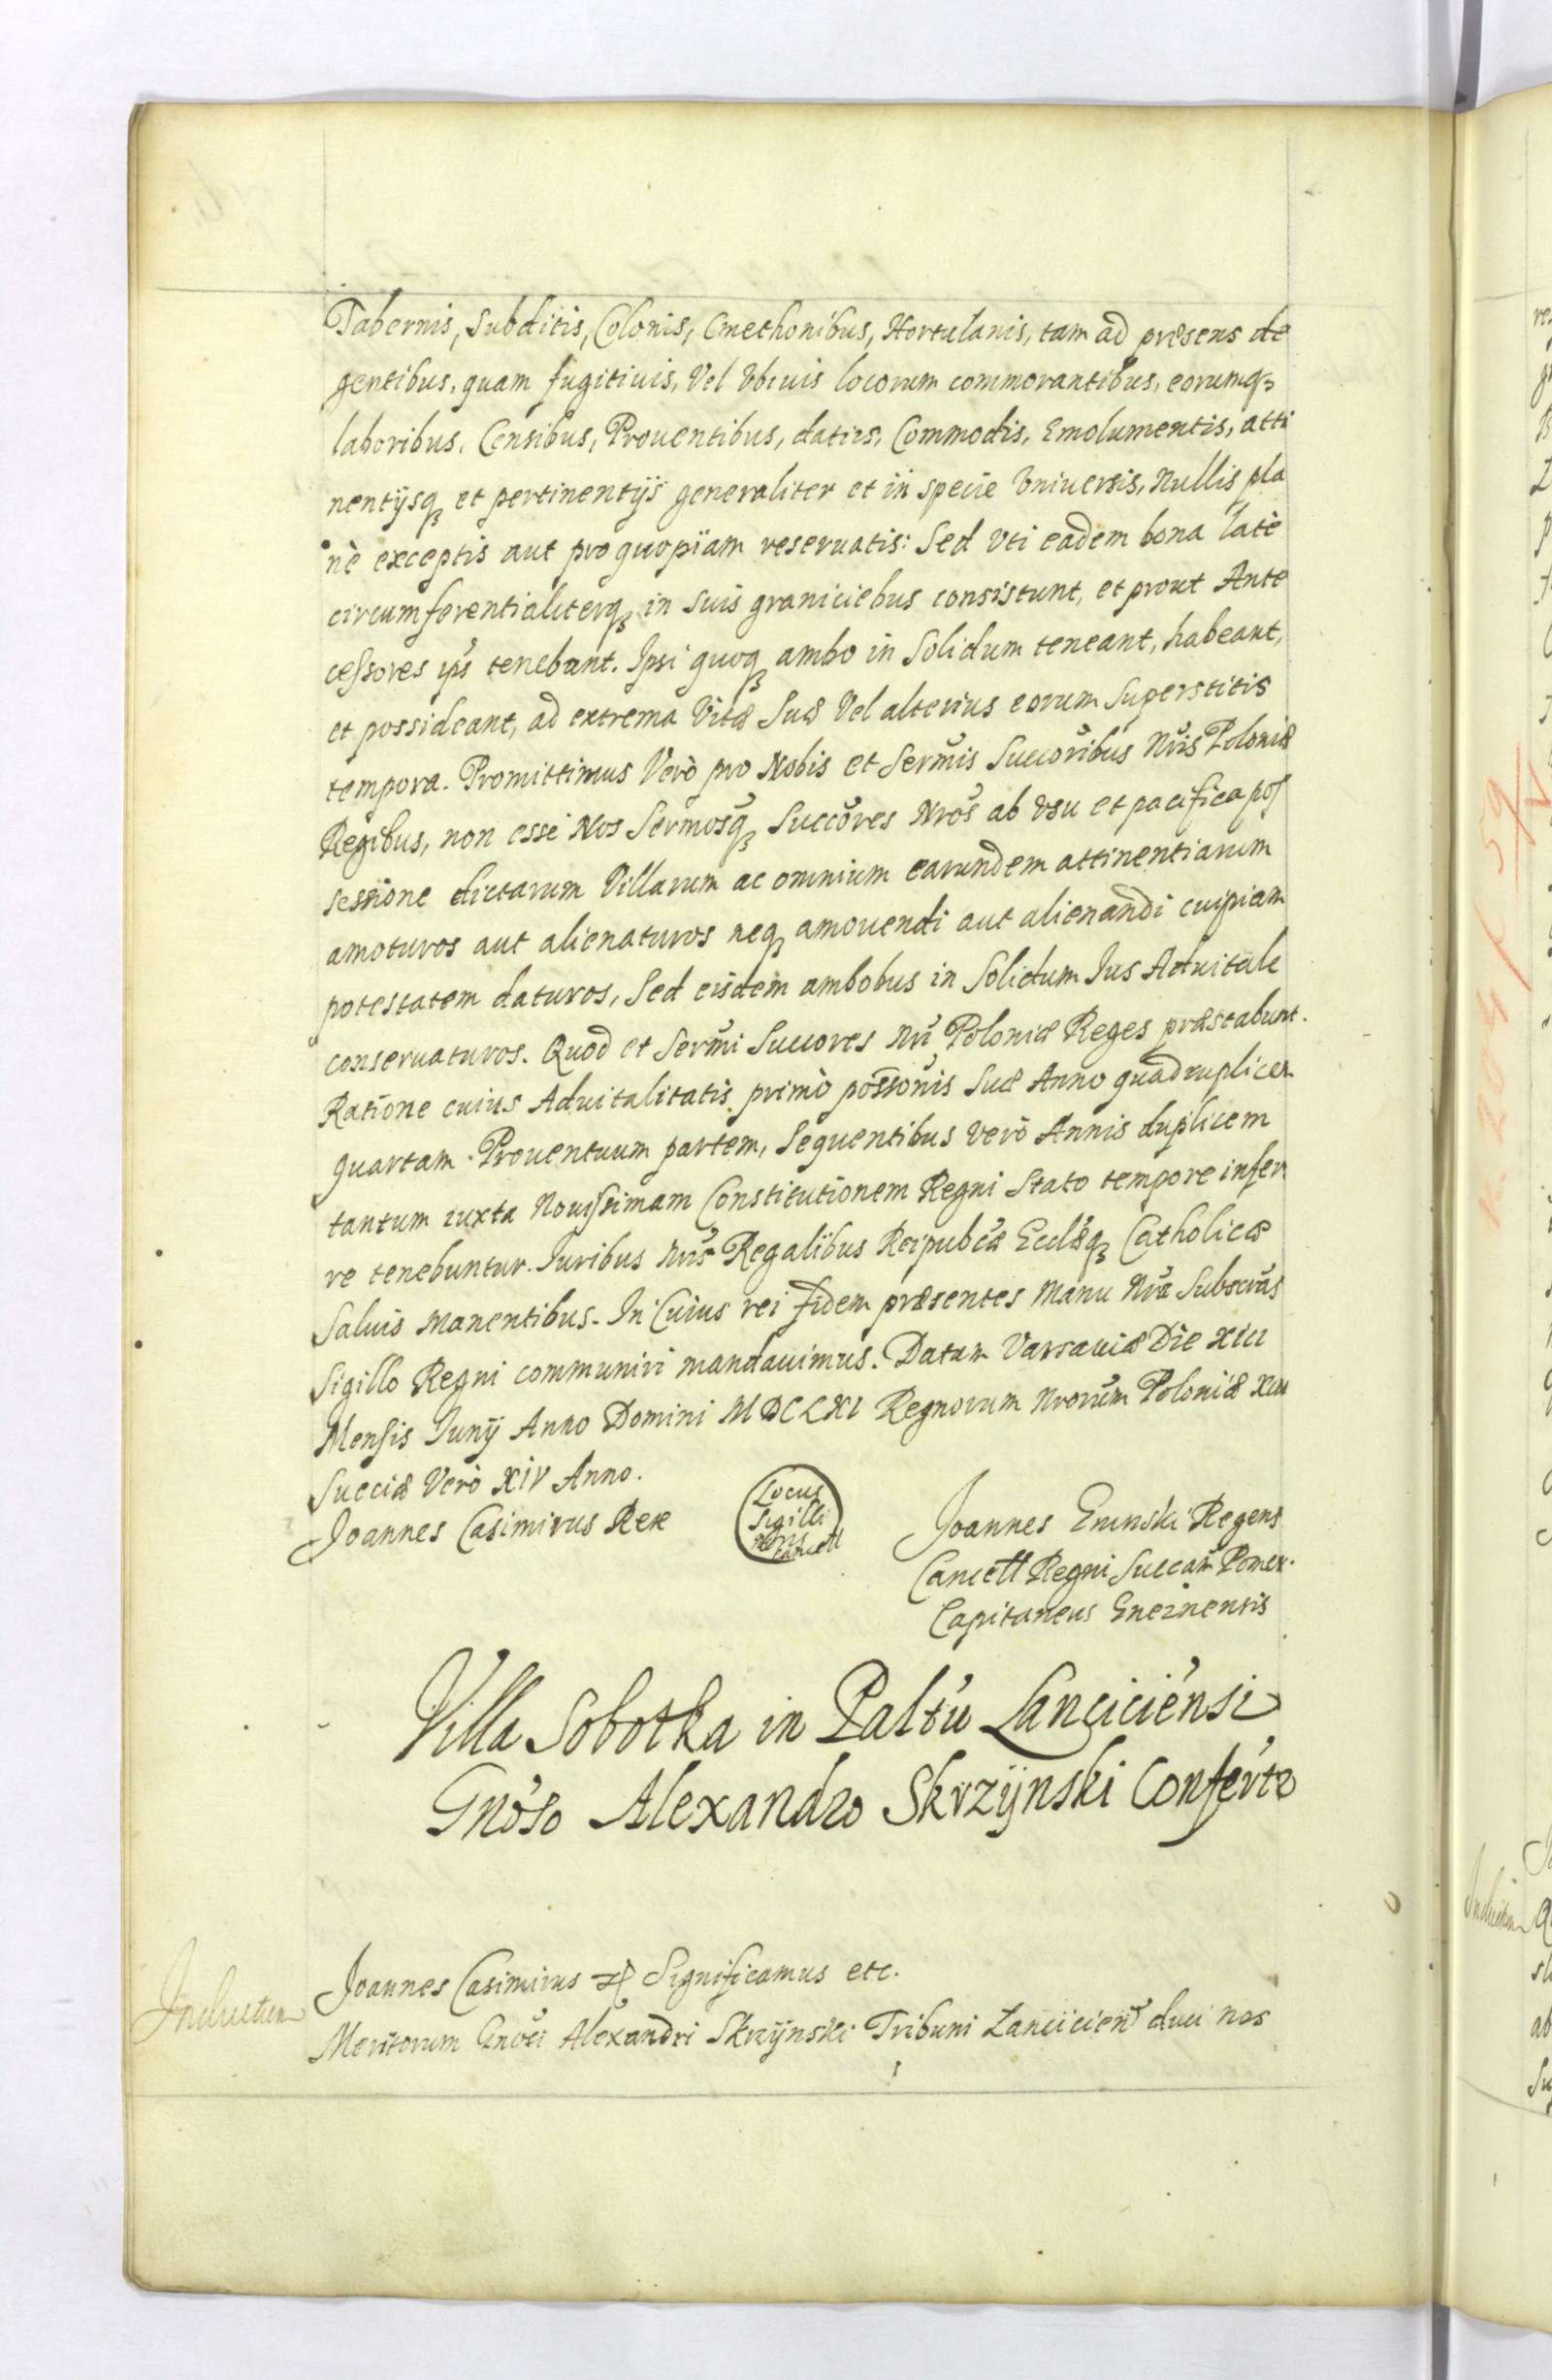 Tabernis, Subditis, Colonis, Cmethonibus, Hortulanis, tam ad præsens de
gentibus, quam fugitivis, Vel Vbivis locorum commorantibus, eorumq3
laboribus, Censibus, Prouentibus, datijs, Commodis, Emolumentis, atti
nentijsq3 et pertinentijs generaliter et in specie Vniuersis, Nullis pla
nè exceptis aut pro quopiam reseruatis: Sed vti eadem bona latè
circumferentialiterq3 in suis graniciebus consistunt, et prout Ante
cessores ip̃s tenebant. Ipsi quoq3 ambo in Solidum teneant, habeant,
et possideant, ad extrema Vitæ Suæ Vel alterius eorum Superstitis
tempora. Promittimus Verò pro Nobis et Serm̃is Succor̃ibus Nr̃is Poloniæ
Regibus, non esse Nos Serm̃osq3 Succor̃es Nr̃os ab vsu et pacifica pos
sessione dictarum Villarum ac omnium earundem attinentiarum
amoturos aut alienaturos neq3 amouendi aut alienandi cuipiam
potestatem daturos, Sed eisdem ambobus in Solidum Ius Aduitale
conseruaturos. Quod et Serm̃i Succores Nr̃i Poloniæ Reges præstabunt.
Ratione cuius Aduitalitatis primò poss̃onis Suæ Anno quadruplicem
quartam Prouentuum partem, Sequentibus verò Annis duplicem
tantum iuxta Nouissimam Constitutionem Regni Stato tempore infer
re tenebuntur. Iuribus Nr̃is Regalibus Reipub̃cæ Eccl̃æq3 Catholicæ
Saluis manentibus. In Cuius rei fidem præsentes Manu Nr̃a Subscr̃as
Sigillo Regni communiri mandauimus. Datum Varsauiæ Die XIII
Mensis Iunij Anno Domini MDCLXI Regnorum Nrorum Poloniæ XIII
Sueciæ Verò XIV Anno.
Joannes Casimirus Rex
Locus
Sigilli
Joannes Regens
Cancell Regni Succam̃ Pomer.
Capitaneus Gneznensis
Villa Sobotka in Palt̃u Lanciciensi
Gnõso Alexandro Skrzÿnski Confer̃tr
Inductum
Joannes Casimirus Significamus etc.
Meritorum Gnõsi Alexandri Skrzÿnski Tribuni Lanciciens̃ duci nos